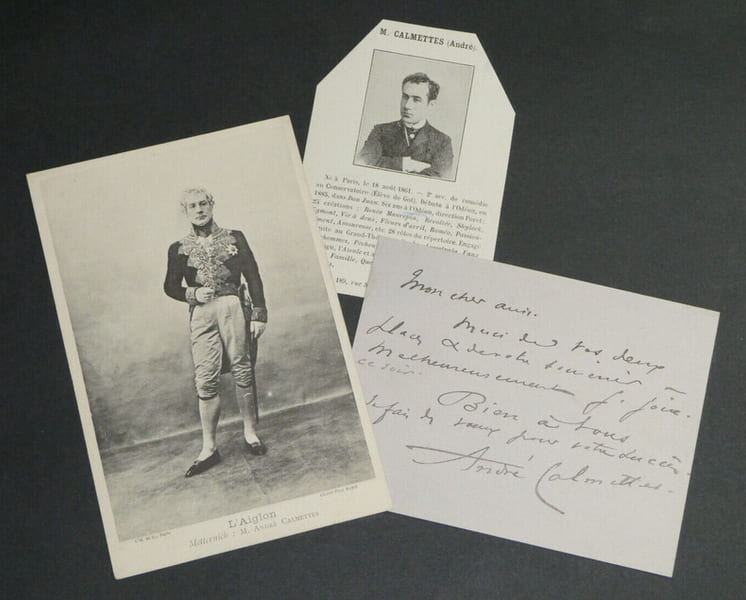 M. CALMETTES (André).
Né à Paris, le 18 août 1861. — 2e acc. de comédie
au Conservatoire (Élève de Got). Débute à l'Odéon, en
1885, dans Don Juan. Six ans à l'Odéon, direction Porel:
25 créations : Renée Mauperin, Révoltée, Shylock,
gmont, Vie à deux, Fleurs d'avril, Roméo, Passion-
ment, Amoureuse, etc. 28 rôles du répertoire. Engagé
ite au Grand-Th
hommer, Pêche
l'Aïeule et
Famille, Que
189, rue
Mon cher ami.
Merci de vos deux
places & de votre souvenir
Malheureusement je joue
ce soir.
Bien à vous
Je fais des vœux pour votre succès.
André Calmettes
L'Aiglon
Metternich : M. ANDRÉ CALMETTES